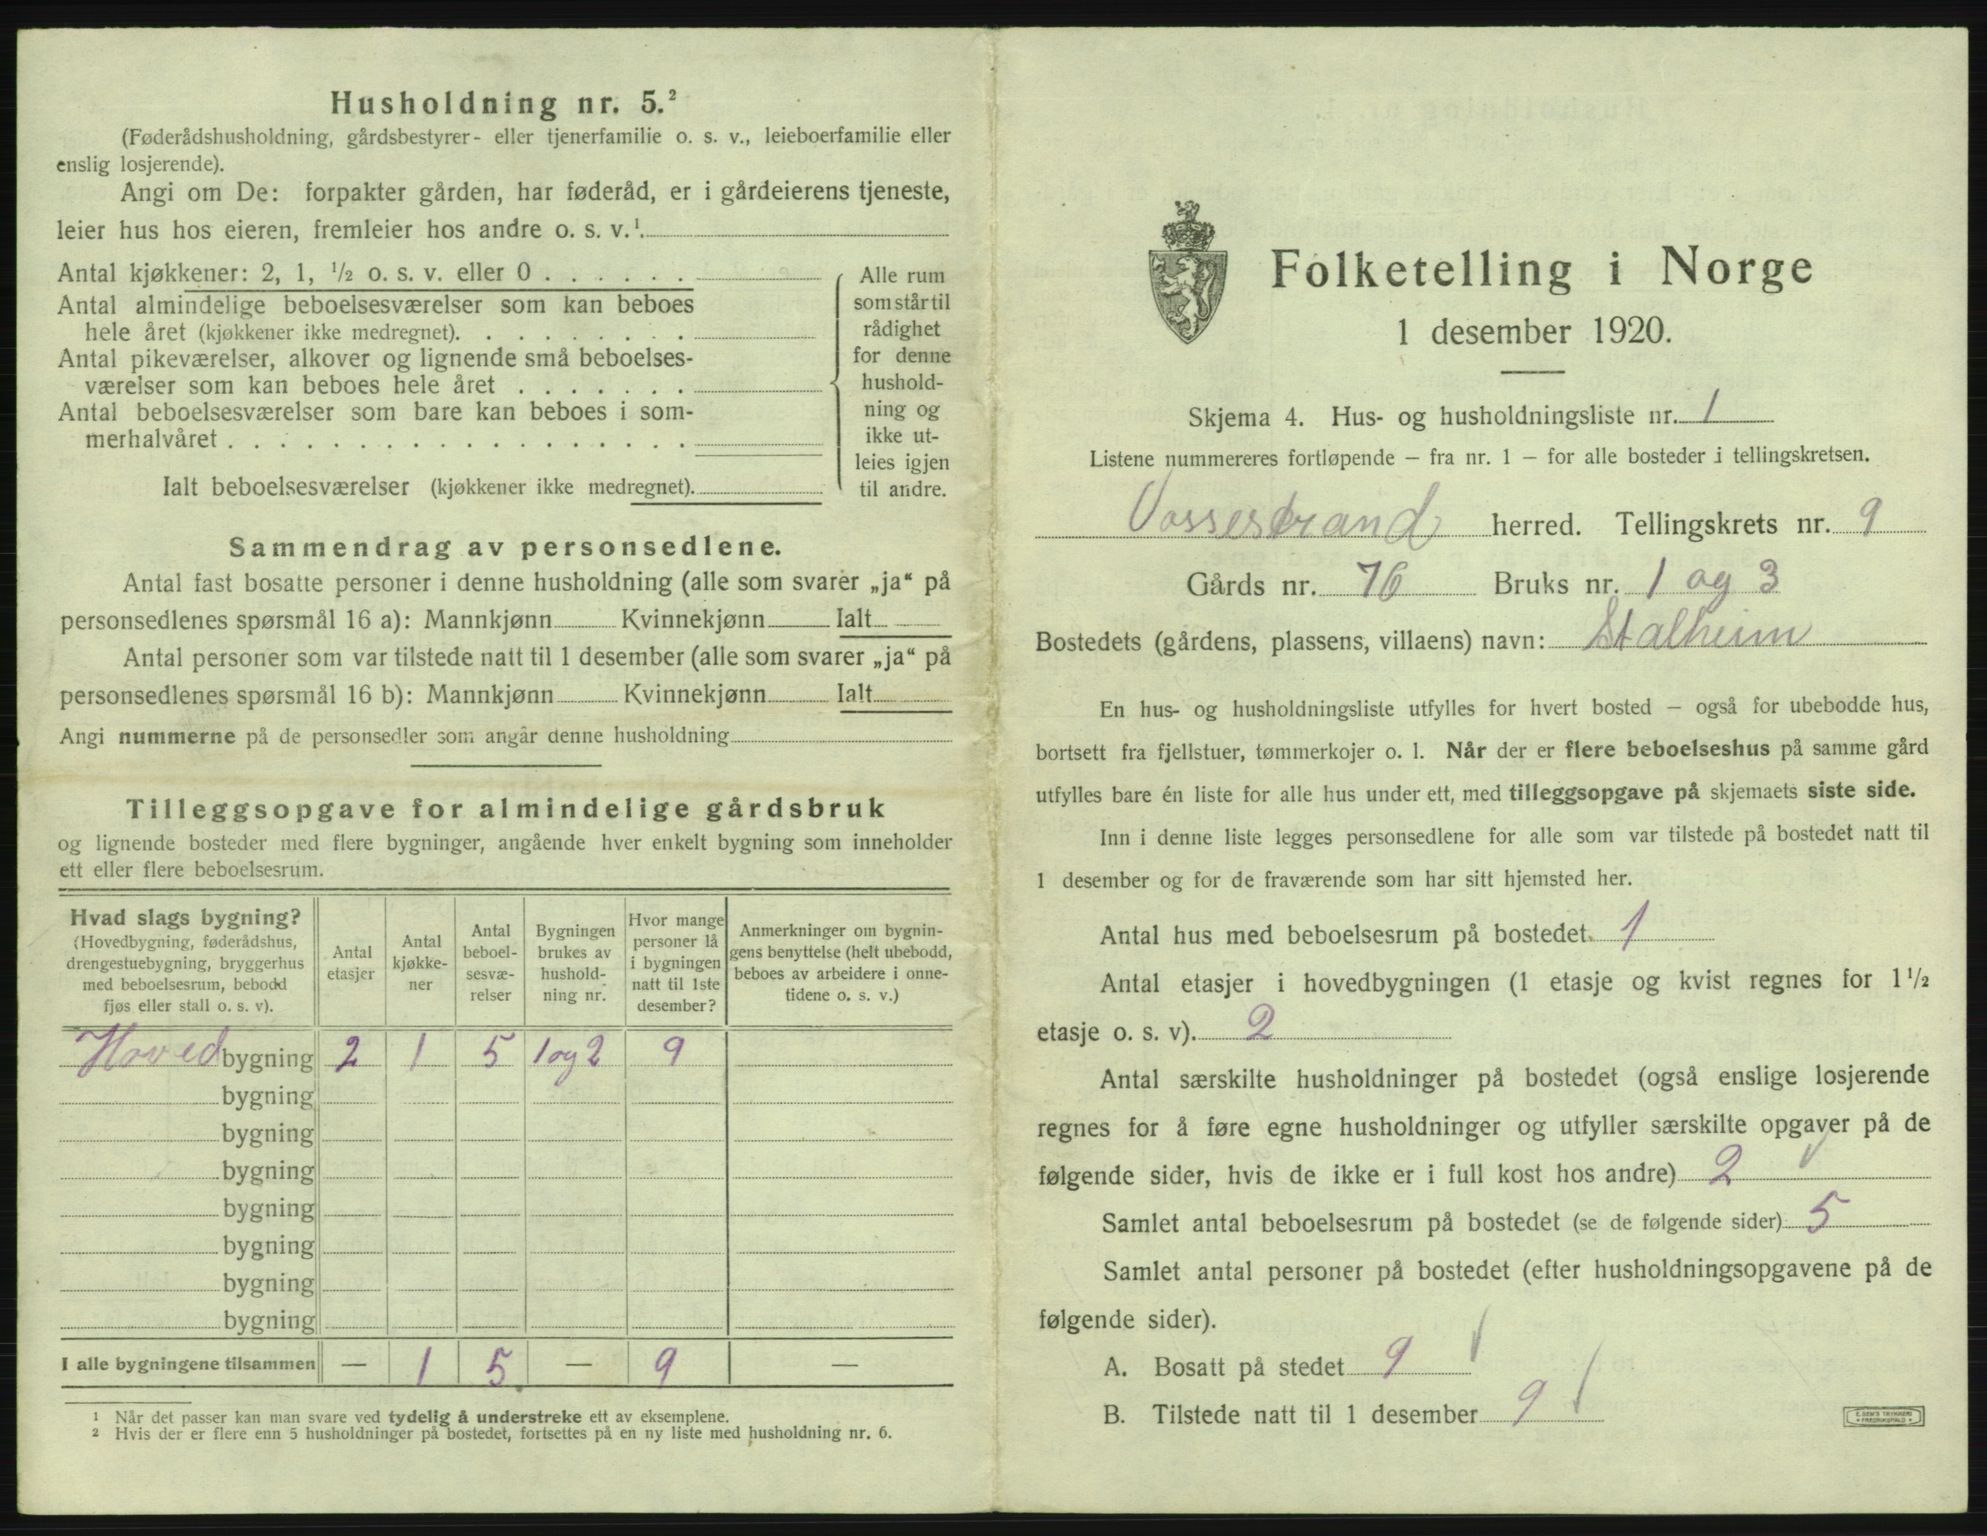 Husholdning nr. 5.²
(Føderådshusholdning, gårdsbestyrer- eller tjenerfamilie o. s. v., leieboerfamilie eller
enslig losjerende).
Angi om De: forpakter gården, har føderåd, er i gårdeierens tjeneste,
leier hus hos eieren, fremleier hos andre o. s. v.¹.
Antal kjøkkener: 2, 1, ½ o. s. v. eller 0 . . . . . .
Antal almindelige beboelsesværelser som kan beboes
hele året (kjøkkener ikke medregnet). . . . . . . . .
Antal pikeværelser, alkover og lignende små beboelses-
værelser som kan beboes hele året . . . . . . .
Antal beboelsesværelser som bare kan beboes i som-
merhalvåret . . . . . . . . . . . . . . . . . .
Ialt beboelsesværelser (kjøkkener ikke medregnet).
Alle rum
som står til
rådighet
for denne
hushold-
ning og
ikke ut-
leies igjen
til andre.
Sammendrag av personsedlene.
Antal fast bosatte personer i denne husholdning (alle som svarer „ja“ på
personsedlenes spørsmål 16 a): Mannkjønn Kvinnekjønn Ialt
Antal personer som var tilstede natt til 1 desember (alle som svarer „ja“ på
personsedlenes spørsmål 16 b): Mannkjønn Kvinnekjønn Ialt
Angi nummerne på de personsedler som angår denne husholdning
Tilleggsopgave for almindelige gårdsbruk
og lignende bosteder med flere bygninger, angående hver enkelt bygning som inneholder
ett eller flere beboelsesrum.
Hvad slags bygning?
(Hovedbygning, føderådshus,
drengestuebygning, bryggerhus
med beboelsesrum, bebodd
fjøs eller stall o. s. v).
Antal
etasjer
Antal
kjøkke-
ner
Antal
beboel-
sesvæ-
relser
Bygningen
brukes av
hushold-
ning nr.
Hvor mange
personer lå
i bygningen
natt til 1ste
desember?
Anmerkninger om bygnin-
gens benyttelse (helt ubebodd,
beboes av arbeidere i onne-
tidene o. s. v.)
Hoved bygning 2 1 5 1 og 2 9
bygning
bygning
bygning
bygning
bygning
bygning
bygning
I alle bygningene tilsammen — 1 5 — 9 —
¹ Når det passer kan man svare ved tydelig å understreke ett av eksemplene.
² Hvis der er flere enn 5 husholdninger på bostedet, fortsettes på en ny liste med husholdning nr. 6.
Folketelling i Norge
1 desember 1920.
Skjema 4. Hus- og husholdningsliste nr. 1
Listene nummereres fortløpende – fra nr. 1 – for alle bosteder i tellingskretsen.
Vossestrand herred. Tellingskrets nr. 9
Gårds nr. 76 Bruks nr. 1 og 3
Bostedets (gårdens, plassens, villaens) navn: Stalheim
En hus- og husholdningsliste utfylles for hvert bosted – også for ubebodde hus,
bortsett fra fjellstuer, tømmerkojer o. l. Når der er flere beboelseshus på samme gård
utfylles bare én liste for alle hus under ett, med tilleggsopgave på skjemaets siste side.
Inn i denne liste legges personsedlene for alle som var tilstede på bostedet natt til
1 desember og for de fraværende som har sitt hjemsted her.
Antal hus med beboelsesrum på bostedet 1
Antal etasjer i hovedbygningen (1 etasje og kvist regnes for 1½
etasje o. s. v). 2
Antal særskilte husholdninger på bostedet (også enslige losjerende
regnes for å føre egne husholdninger og utfyller særskilte opgaver på de
følgende sider, hvis de ikke er i full kost hos andre) 2
Samlet antal beboelsesrum på bostedet (se de følgende sider) 5
Samlet antal personer på bostedet (efter husholdningsopgavene på de
følgende sider).
A. Bosatt på stedet 9
B. Tilstede natt til 1 desember 9
E. SEM'S TRYKKERI
FREDRIKSHALD